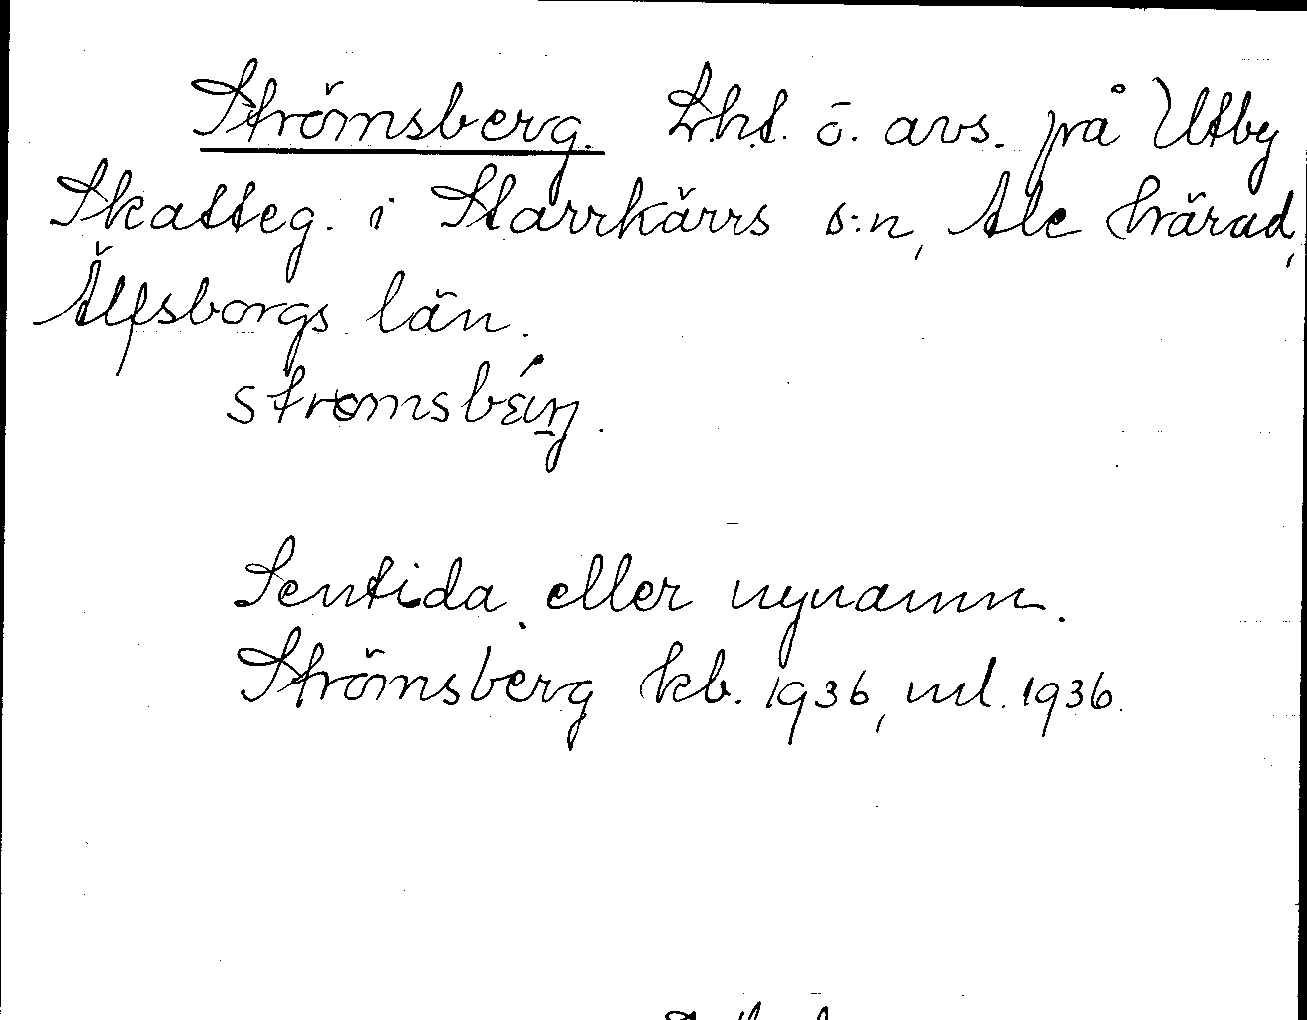 Strömsberg. Lht. ö. avs. på Utby
Skatteg. i Starrkärrs s:n, Ale härad,
Älfsborgs län.
Sentida eller nynamn.
Strömsberg kb. 1936, ml. 1936.